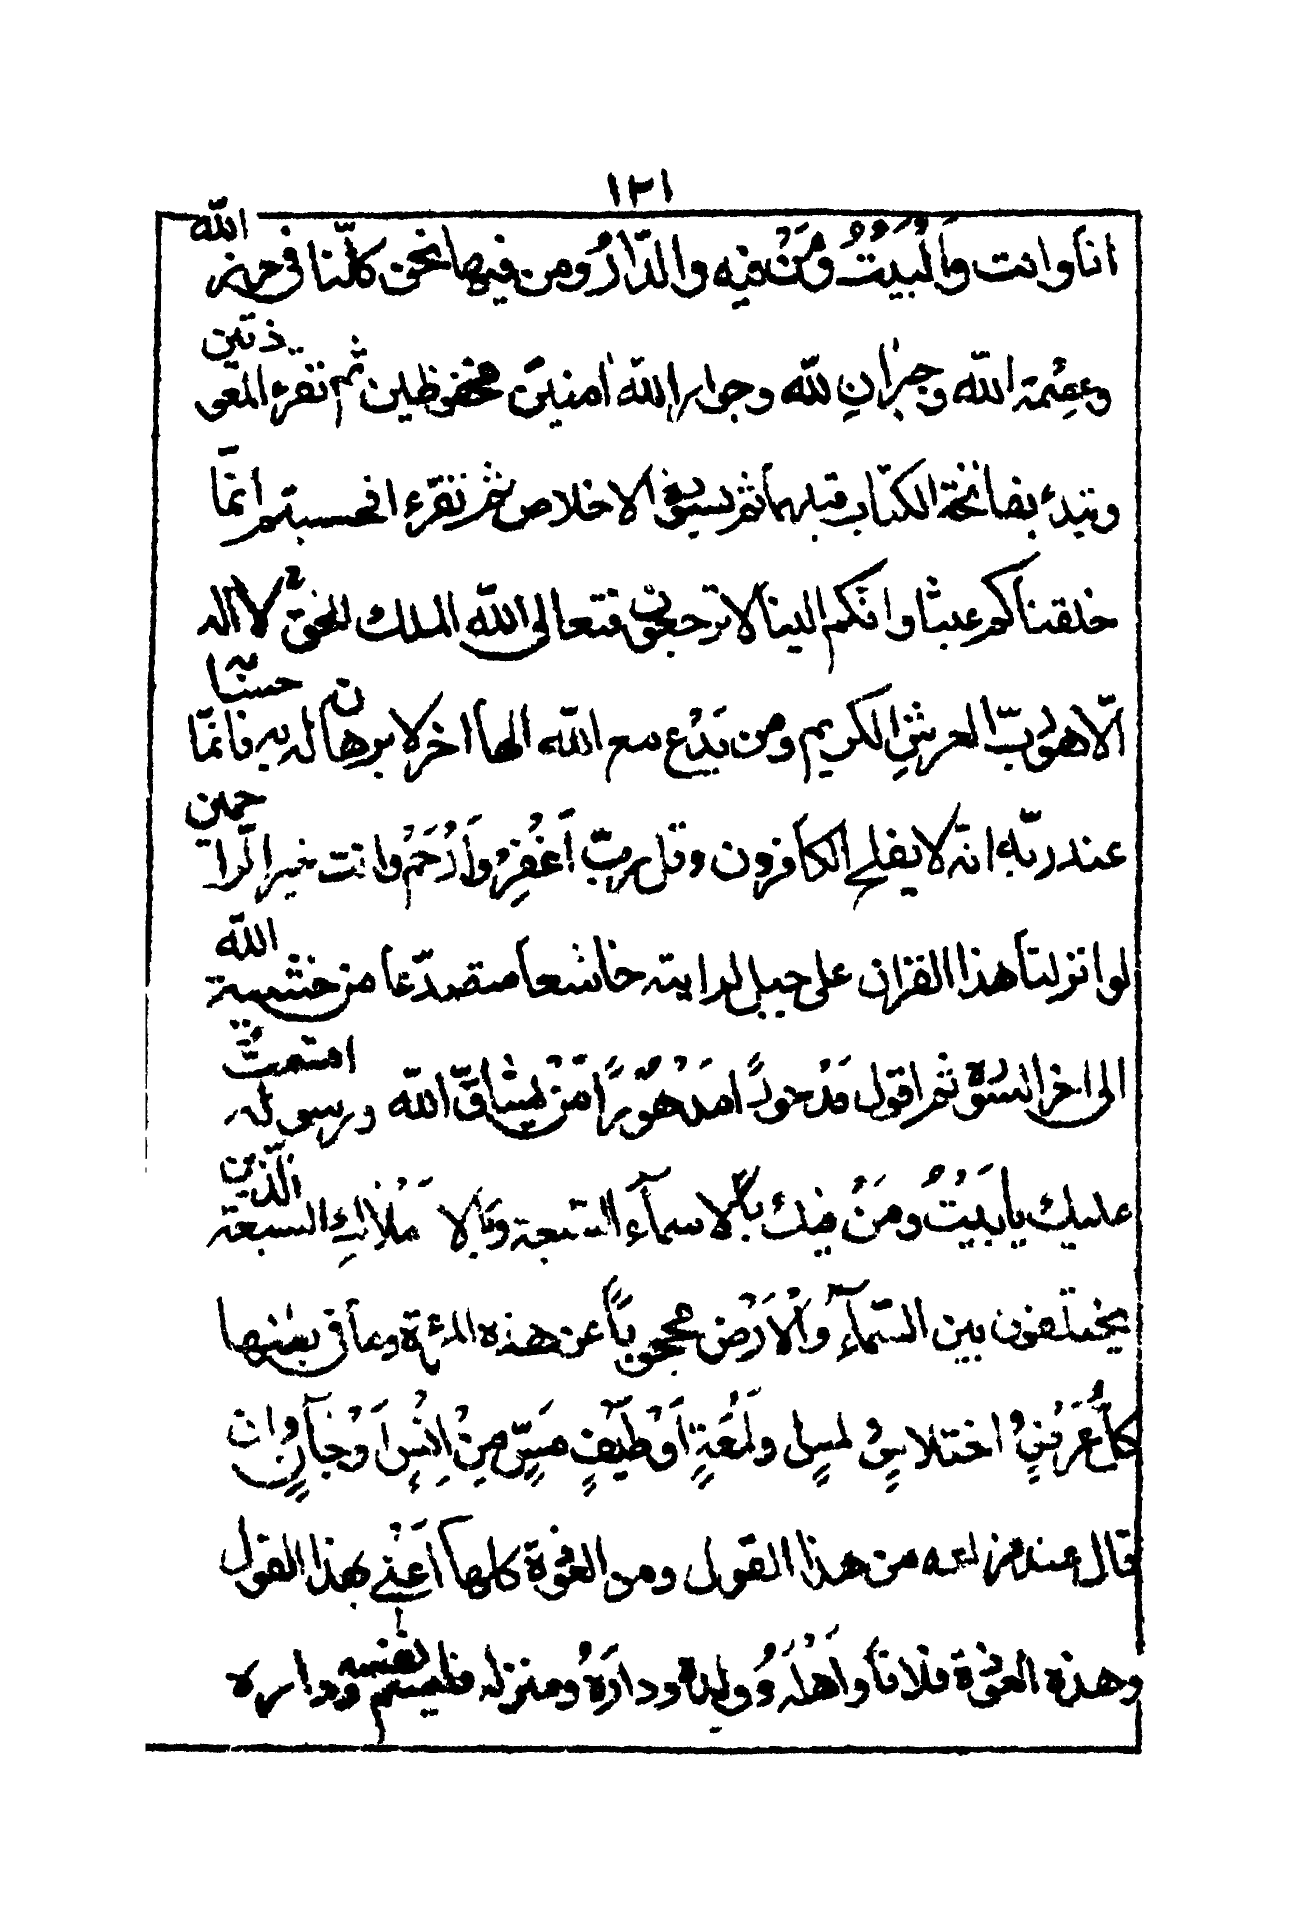 ١٢١
انا وانت وَالْبَيْتُ وَمَنْ فِيْهِ وَالدَّارُ ومن فيها نحن كلّنا فى حرز الله
وعِصْمَة الله وجِيْرَانِ لله وجوار الله امنين محفوظين ثم تقرء المعوذتين
وتبدء بفاتحة الكتاب قبلهما ثم بسورة الاخلاص ثم تقرء افحسبتم انّما
خلقناكم عبثا وانّكم الينا لا ترجعون فتعالى الله الملك الحق لا اله
الّا هو ربّ العرش الكريم ومن يَدْع مع الله الها اخر لا برهان له به فانّما حسابه
عند ربّه انّه لا يفلح الكافرون وقل ربّ اَغْفِرْ وَاَرْحَمْ وانت خير الرّاحمين
لو انزلنا هذا القران على جبل لرايته خاشعا متصدّعا من خشية الله
الى اخر السّورة ثم اقول مَدْحُورًا مَدْهُوْرًا مَنْ يُّشَاقِّ الله ورسوله
عليك يا بَيْتُ ومَنْ فيك بالاسمآء السّبعة وبالاملاك السبعة الّذين
يختلفون بين السّمآءِ وَالْاَرْضِ محجوبًا عن هذه المرءة وعمّا فى بطنها
كلُّ اختلاسٍ لمسٍ ولَمْعَةٍ اَوْ طَيْفٍ مَسٍّ مِنْ اِنْسٍ اَوْ جَآنٍّ وان
قال عند فراغه من هذا القول ومن العوذة كلها اَعْنِى بهذا القول
وهذه العوذة فلانا وَاَهْلَه وَوَلَدَهُ ودارَهُ ومنزله فليسم نفسه وداره